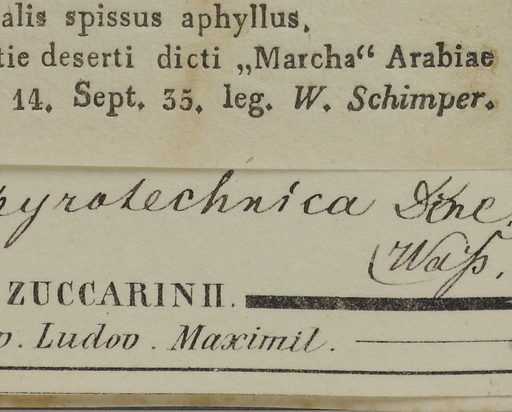 alis spissus aphyllus.
tie deserti dicti „Marcha“ Arabiae
14. Sept. 35. leg. W. Schimper.
pyrotechnica Dcne.
ZUCCARINII.
Ludov. Maximil.